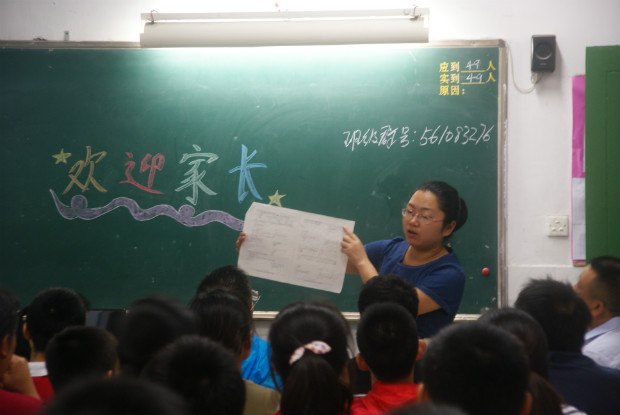 应到 49 人
实到 49 人
原因：
班级群号：561083276
欢迎家长